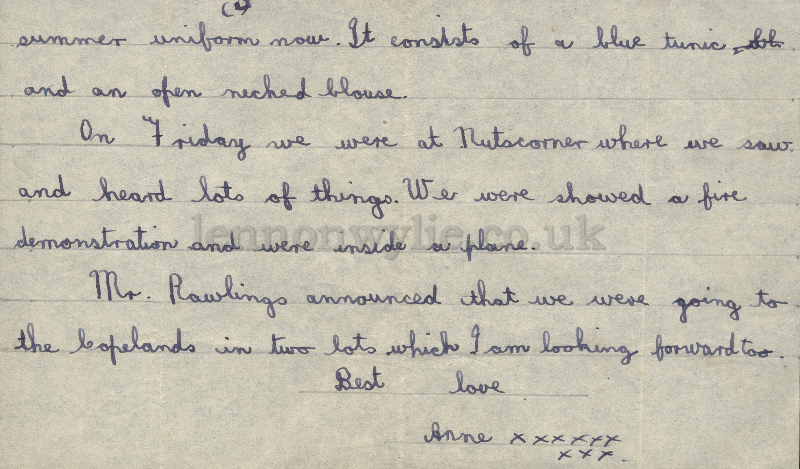 (4)
summer uniform now. It consists of a blue tunic,
and an open necked blouse.
On Friday we were at Nutscorner where we saw
and heard lots of things. We were showed a fire
demonstration and were inside a plane.
lennonwylie.co.uk
Mr. Rawlings announced that we were going to
the Copelands in two lots which I am looking forward too.
Best love
Anne xxxxxx
xxx.